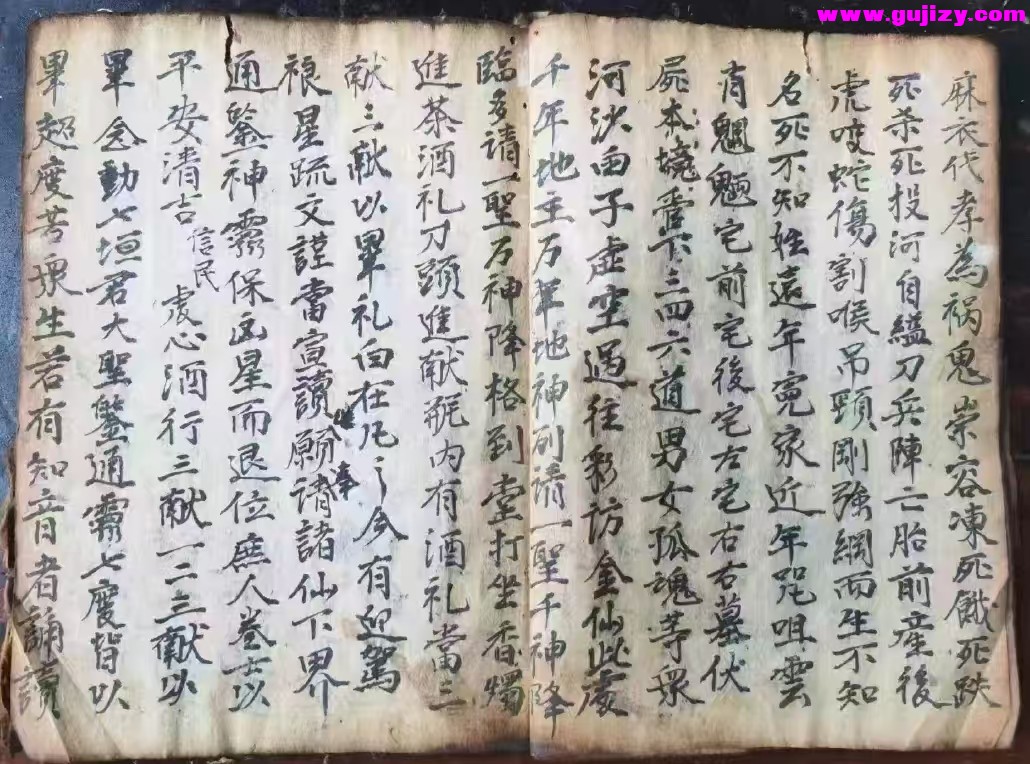 www.gujizy.com
麻衣代孝為祸鬼崇容凍死餓死跌
死杀死投河自縊刀兵陣亡胎前産後
虎咬蛇傷割喉吊頸剛強綱而生不知
名死不知姓遠年冤家近年咒咀雲
肖魍魎宅前宅後宅左宅右右墓伏
屍本境管下三四六道男女孤魂等眾
河沙由子虚空過往彩訪金仙此處
千年地主万年地神列請一聖千神降
臨多請一聖万神降格到堂打坐香燭
進茶酒礼刀頭進献瓶内有酒礼當三
献三献以畢礼白在凡之今有迎駕
禳星疏文謹當宣讀願請諸仙下界
通鑒神靈保凶星而退位庶人卷土以
平安清吉信民虔心酒行三献一二三献以
畢念動七垣君大聖鑒通霄七度皆以
畢超度苦眾生若有知音者誦讀
奉